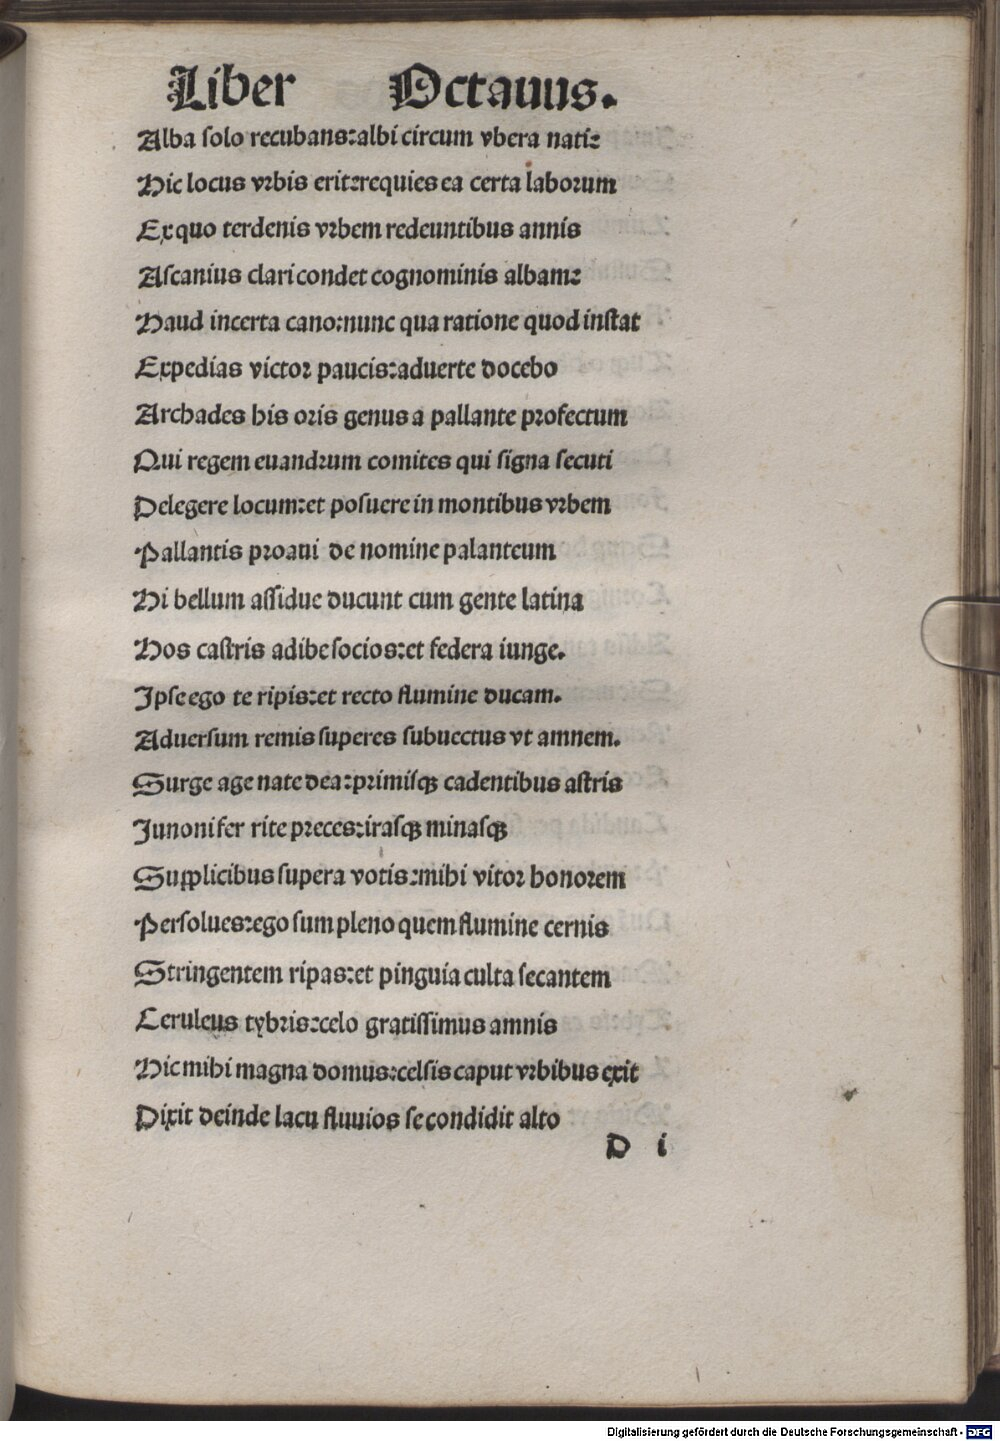 Liber Octauus.
Alba ſolo recubans:albi circum vbera nati:
Hic locus vrbis erit:requies ea certa laborum
Ex quo terdenis vrbem redeuntibus annis
Aſcanius clari condet cognominis albam:
Haud incerta cano:nunc qua ratione quod inſtat
Expedias victor paucis:aduerte docebo
Archades his oris genus a pallante profectum
Qui regem euandrum comites qui ſigna ſecuti
Delegere locum:et poſuere in montibus vrbem
Pallantis proaui de nomine palanteum
Hi bellum aſſidue ducunt cum gente latina
Hos caſtris adibe ſocios:et federa iunge.
Ipſe ego te ripis:et recto flumine ducam.
Aduerſum remis ſuperes ſubuectus vt amnem.
Surge age nate dea:primiſqꝫ cadentibus aſtris
Iunoni fer rite preces:iraſqꝫ minaſqꝫ
Supplicibus ſupera votis:mihi victor honorem
Perſolues:ego ſum pleno quem flumine cernis
Stringentem ripas:et pinguia culta ſecantem
Ceruleus tybris:celo gratiſſimus amnis
Hic mihi magna domus:celſis caput vrbibus exit
Dixit deinde lacu fluuios ſe condidit alto
D i
Digitalisierung gefördert durch die Deutsche Forschungsgemeinschaft - DFG